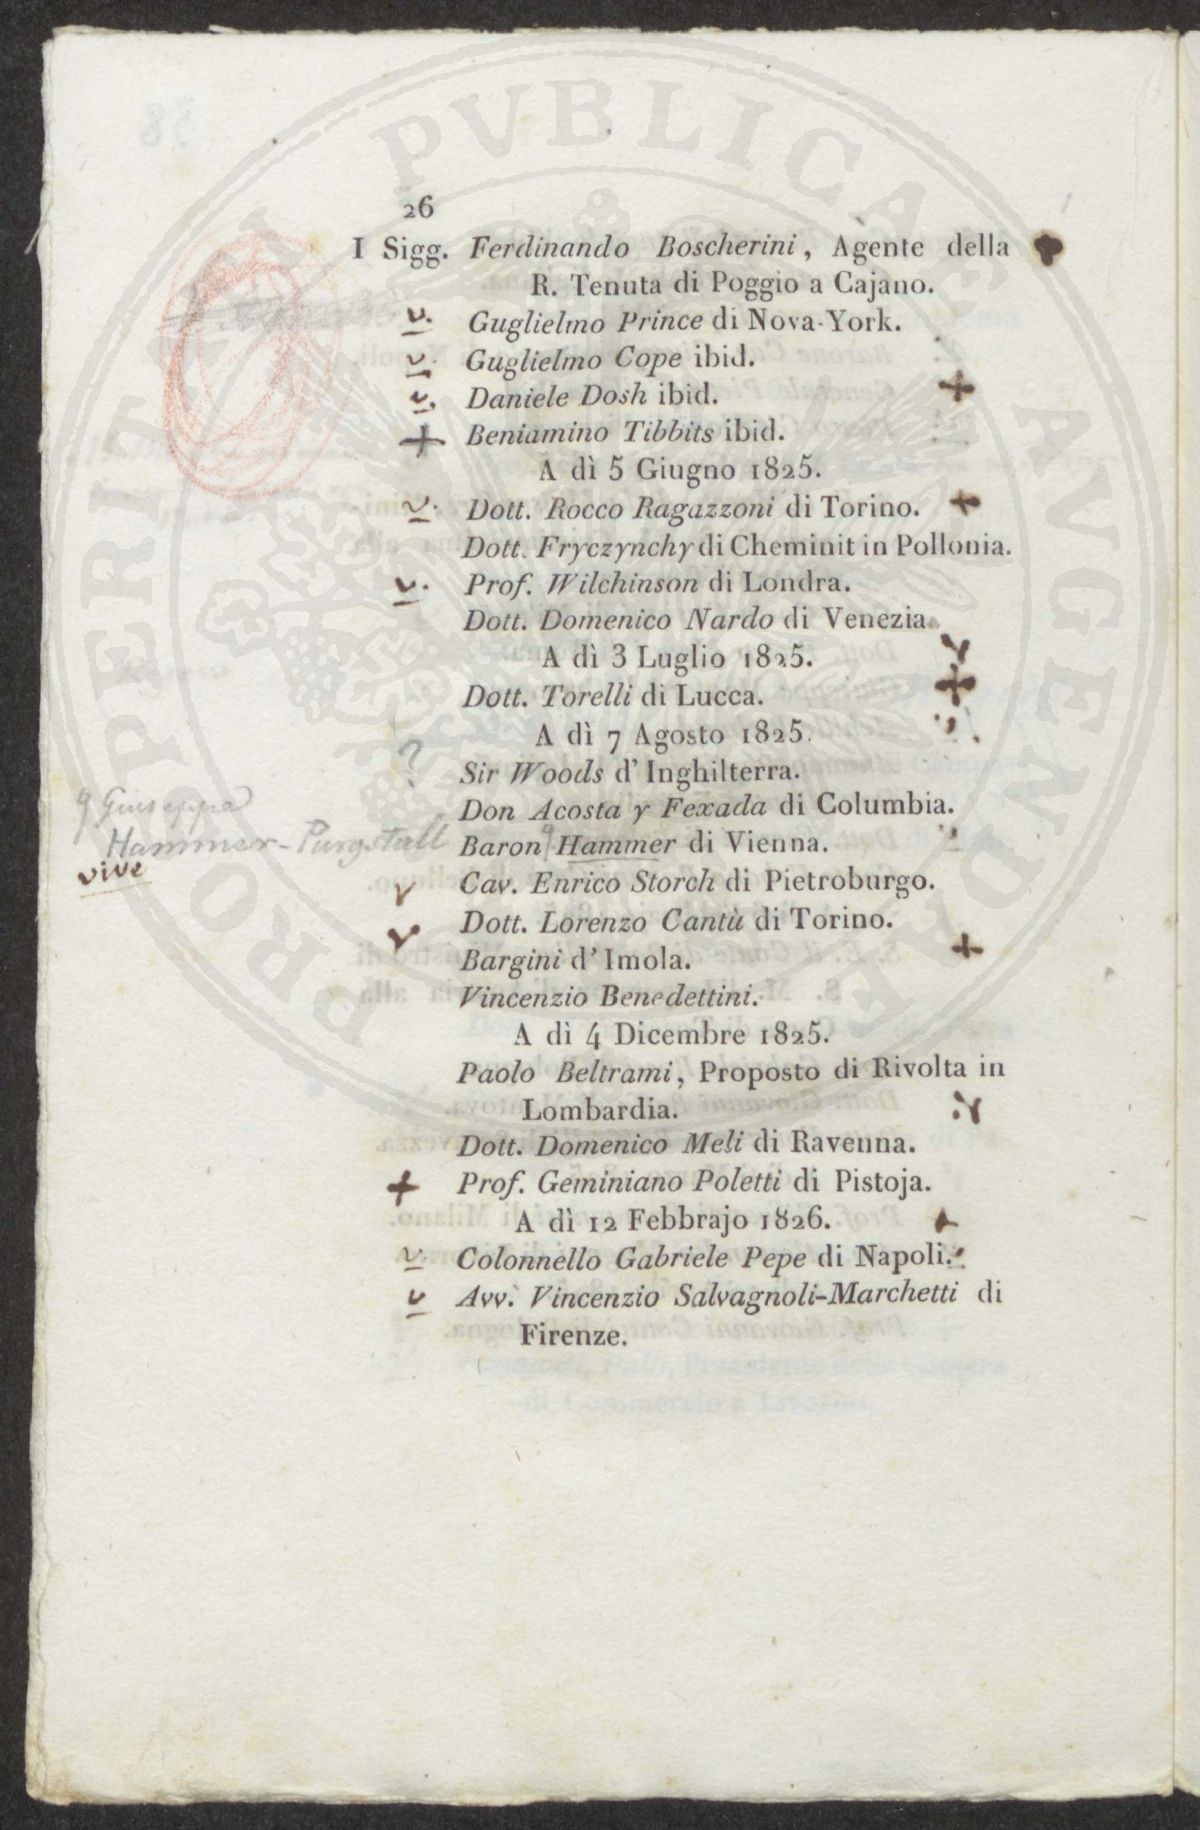 26
I Sigg. Ferdinando Boscherini, Agente della
R. Tenuta di Poggio a Cajano.
v. Guglielmo Prince di Nova-York.
v. Guglielmo Cope ibid.
v. Daniele Dosh ibid. +
+ Beniamino Tibbits ibid.
A dì 5 Giugno 1825.
v. Dott. Rocco Ragazzoni di Torino. +
Dott. Fryczynchy di Cheminit in Pollonia.
v. Prof. Wilchinson di Londra.
Dott. Domenico Nardo di Venezia.
A dì 3 Luglio 1825. v
Dott. Torelli di Lucca. +
A dì 7 Agosto 1825.
? Sir Woods d' Inghilterra.
Don Acosta y Fexada di Columbia.
Giuseppe
Hammer-Purgstall
vive
Baron Hammer di Vienna.
v Cav. Enrico Storch di Pietroburgo.
v Dott. Lorenzo Cantù di Torino.
Bargini d' Imola. +
Vincenzio Benedettini.
A dì 4 Dicembre 1825.
Paolo Beltrami, Proposto di Rivolta in
Lombardia. v
Dott. Domenico Meli di Ravenna.
+ Prof. Geminiano Poletti di Pistoja.
A dì 12 Febbrajo 1826.
v. Colonnello Gabriele Pepe di Napoli.
v Avv. Vincenzio Salvagnoli-Marchetti di
Firenze.
PROPERITATI PVBLICAE AVGENDAE